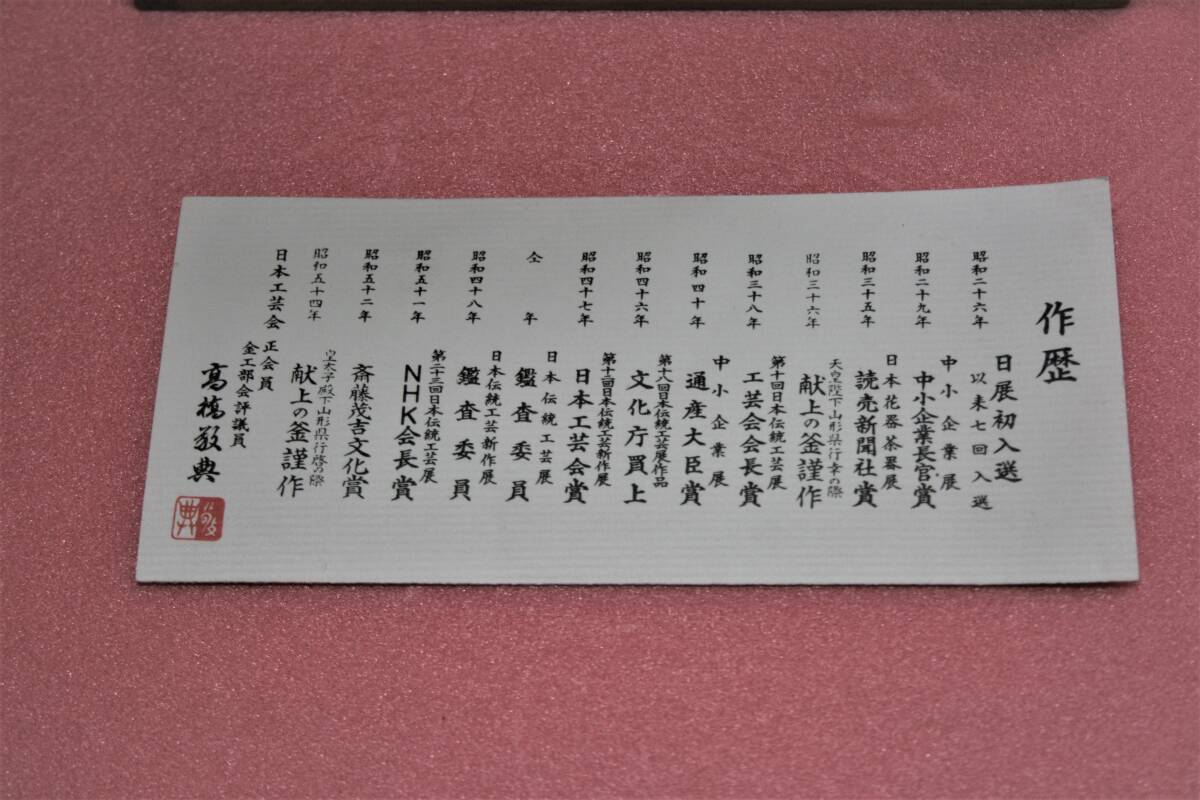 作歴
昭和二十六年 日展初入選
以来七回入選
昭和二十九年 中小企業展
中小企業長官賞
昭和三十五年 日本花器茶器展
読売新聞社賞
昭和三十六年 天皇陛下山形県行幸の際
献上の釜謹作
昭和三十八年 第十回日本伝統工芸展
工芸会会長賞
昭和四十年 中小企業展
通産大臣賞
昭和四十六年 第十八回日本伝統工芸展作品
文化庁買上
昭和四十七年 第十二回日本伝統工芸新作展
日本工芸会賞
仝年 日本伝統工芸展
鑑査委員
昭和四十八年 日本伝統工芸新作展
鑑査委員
昭和五十一年 第二十三回日本伝統工芸展
NHK会長賞
昭和五十二年 斎藤茂吉文化賞
昭和五十四年 皇太子殿下山形県行啓の際
献上の釜謹作
日本工芸会 正会員
金工部会評議員
高橋敬典
敬典